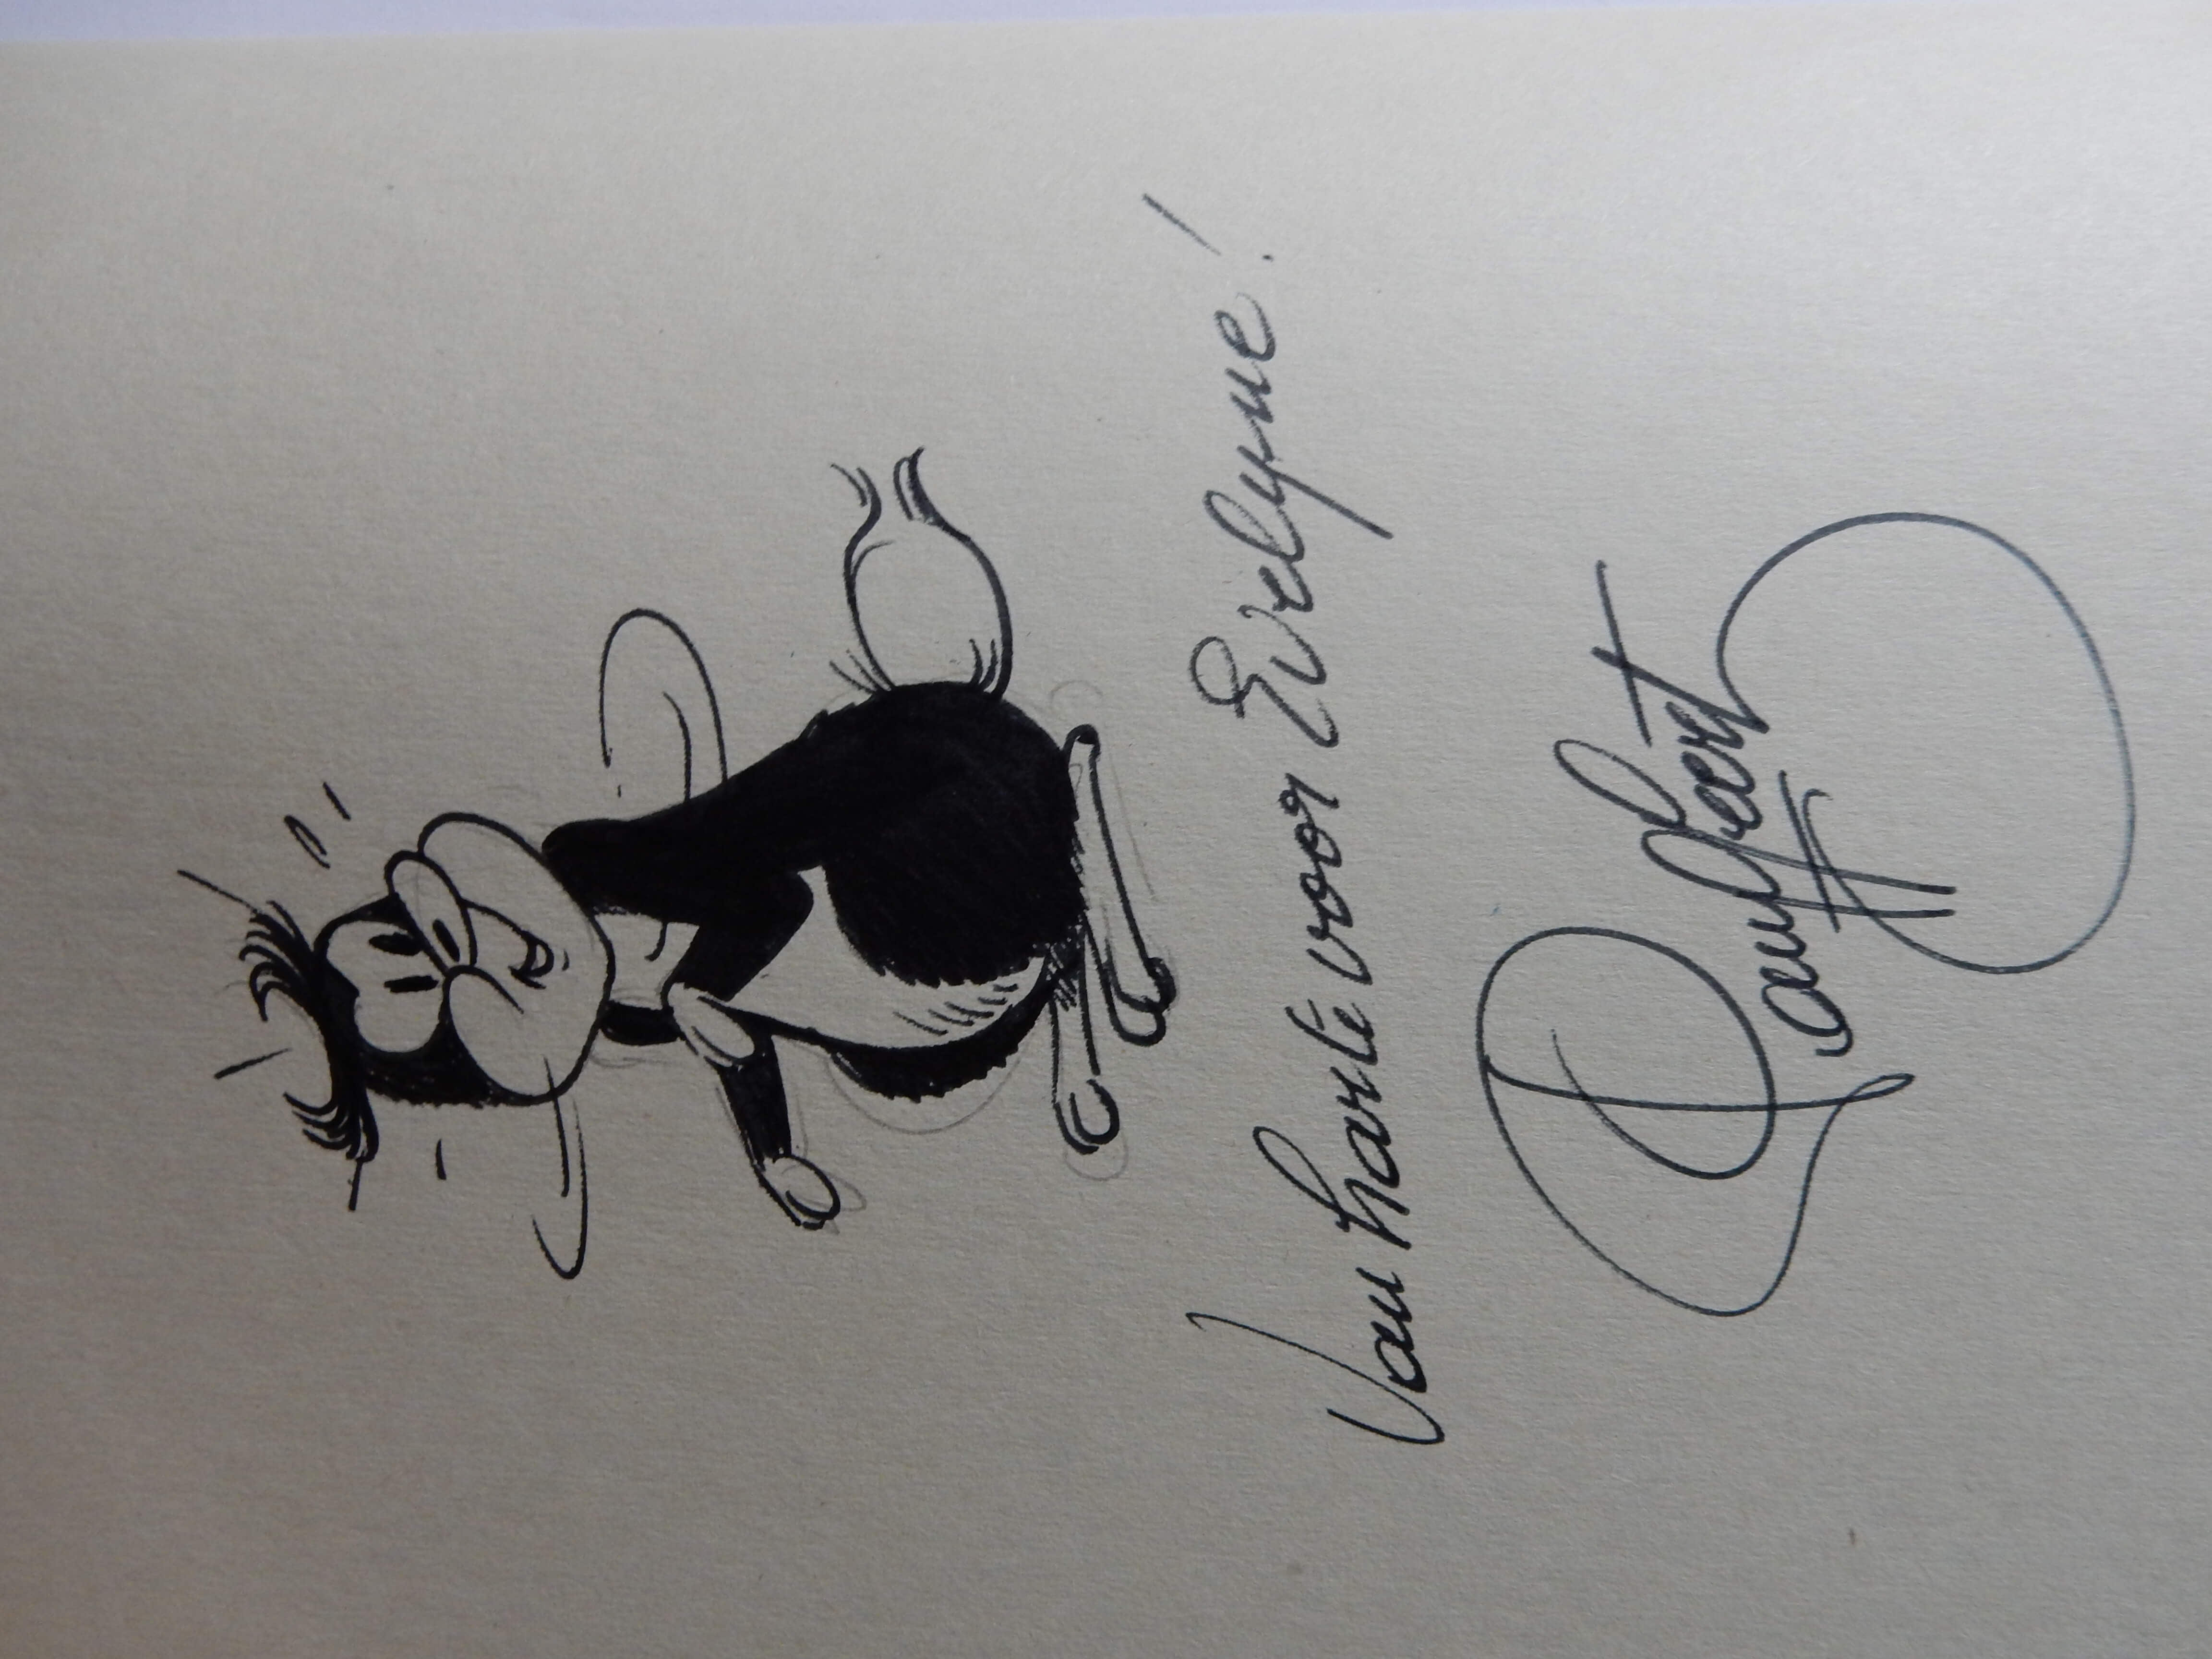 Van harte voor Evelyne!
Paul Geerts